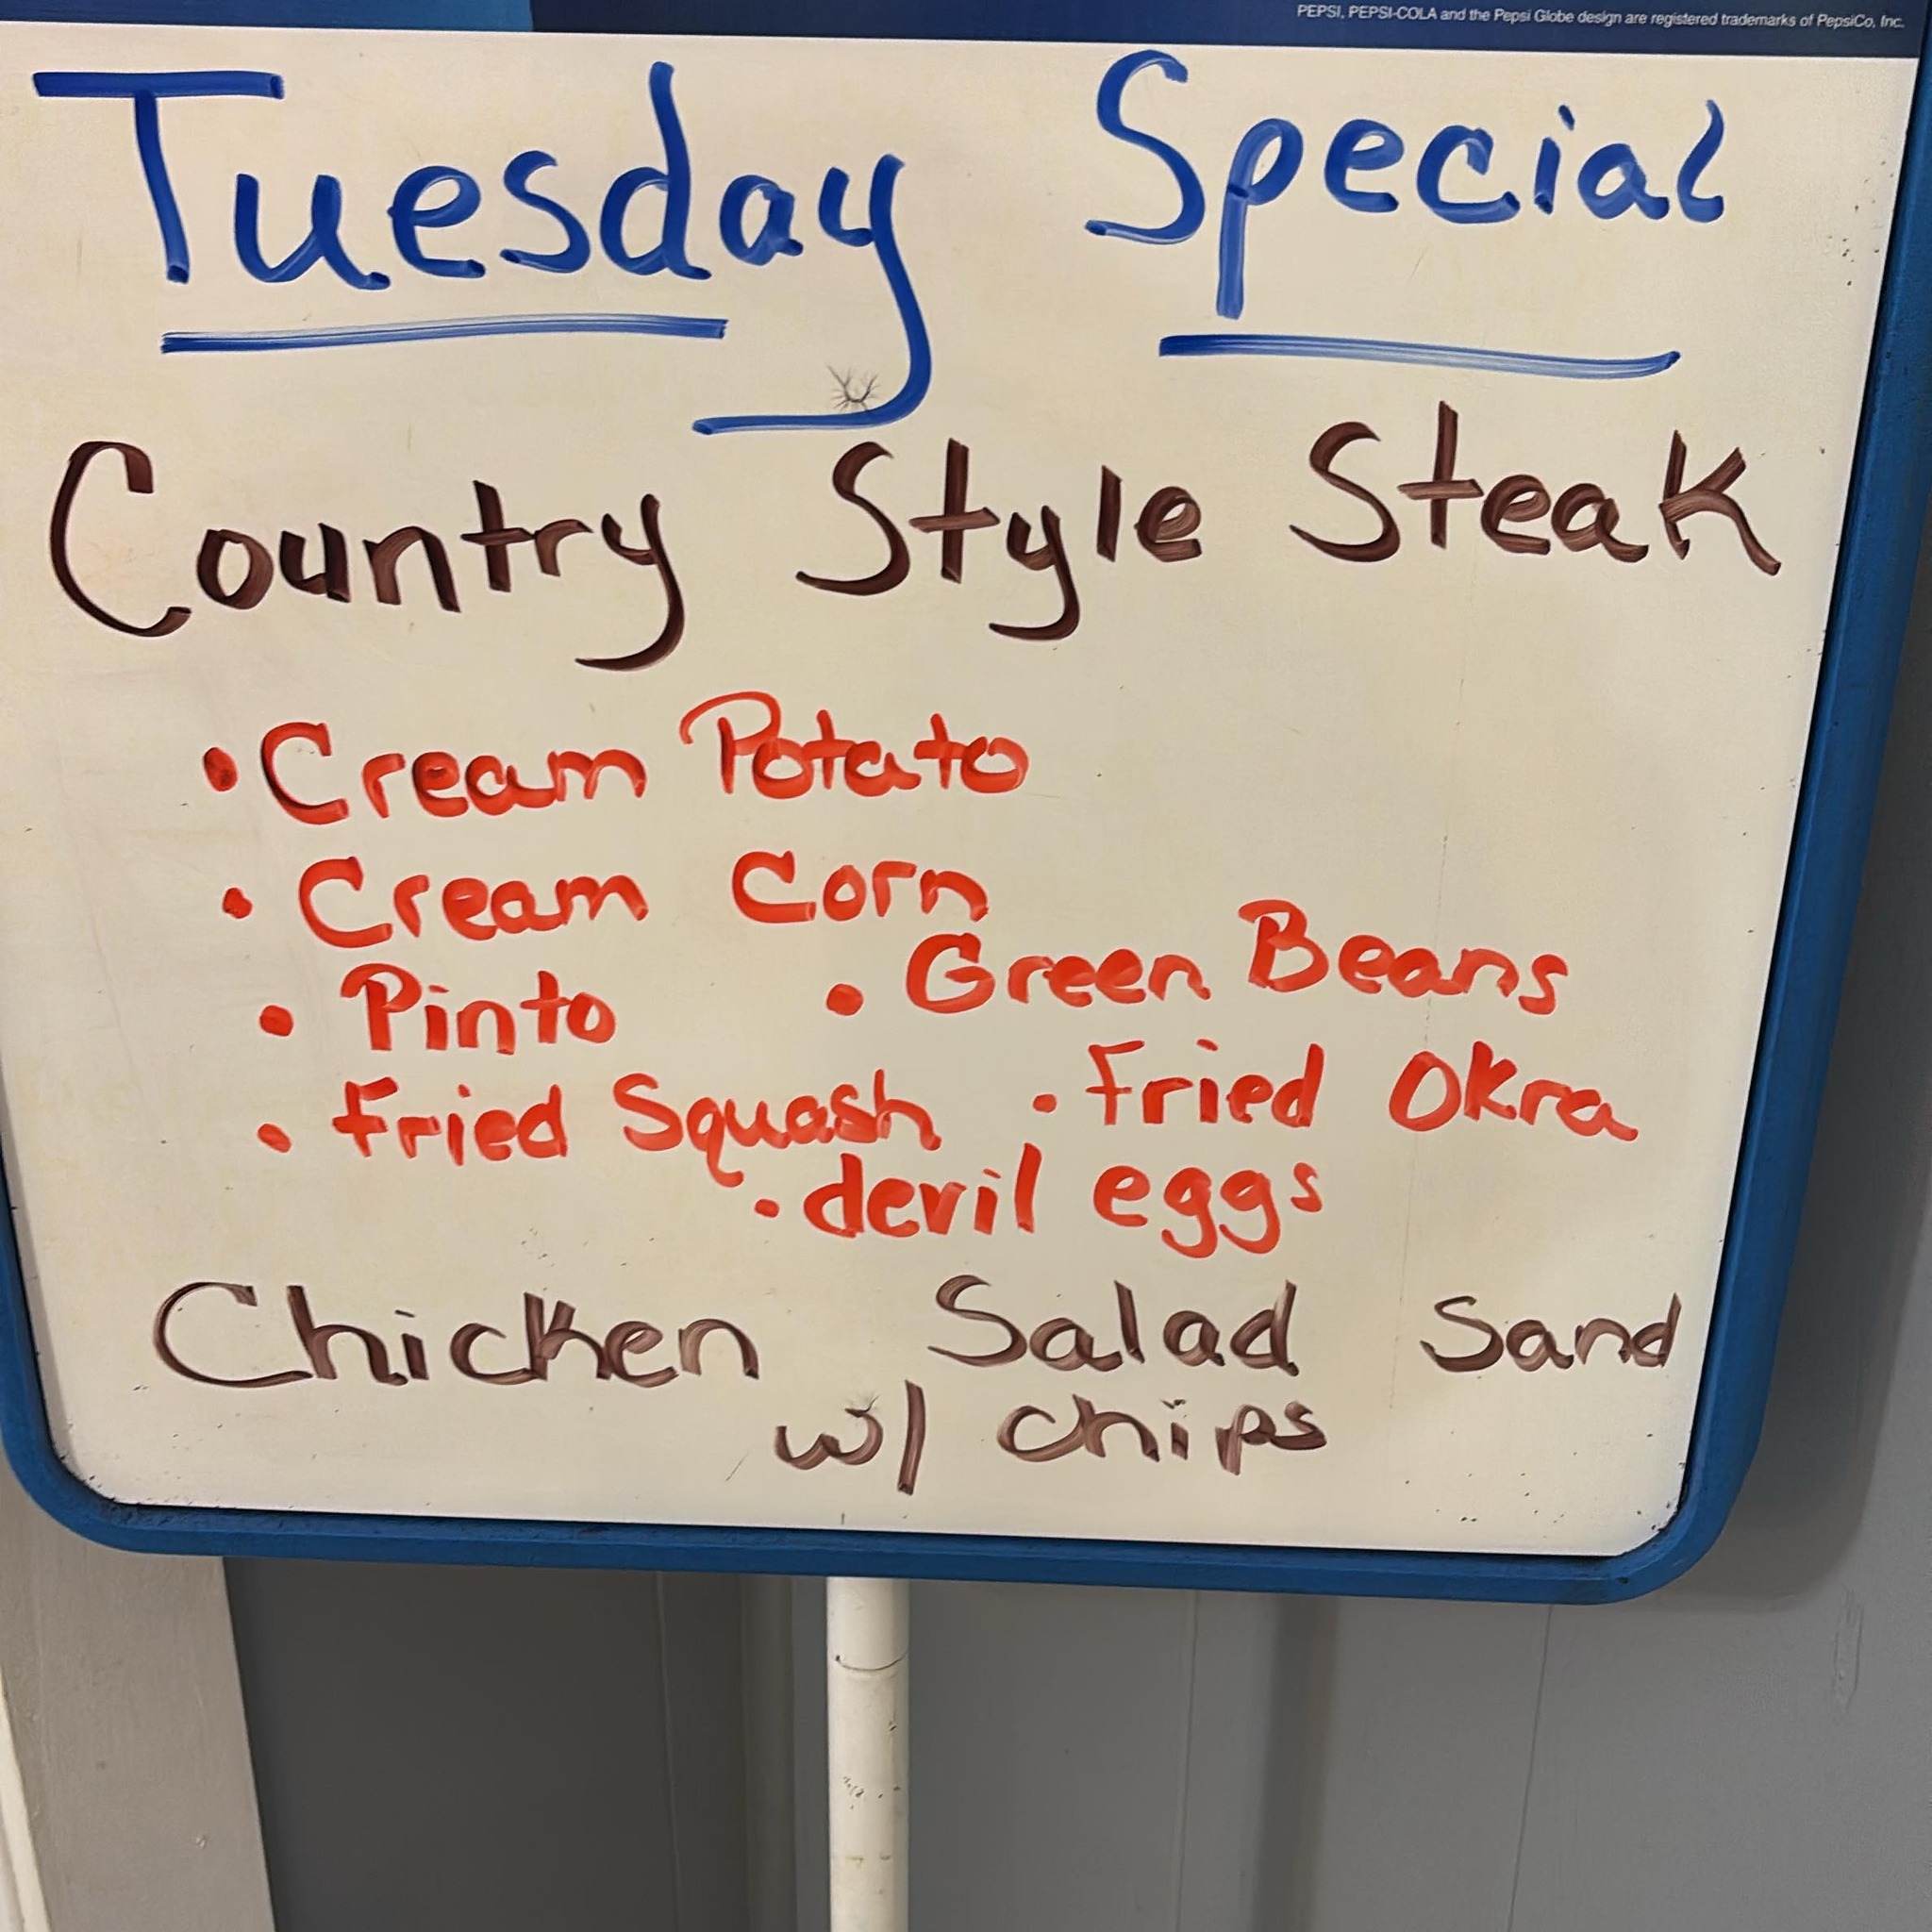 PEPSI, PEPSI-COLA and the Pepsi Globe design are registered trademarks of PepsiCo, Inc.
Tuesday Special
Country Style Steak
• Cream Potato
• Cream Corn
• Pinto • Green Beans
• Fried Squash • Fried Okra
• devil eggs
Chicken Salad Sand
w/ chips